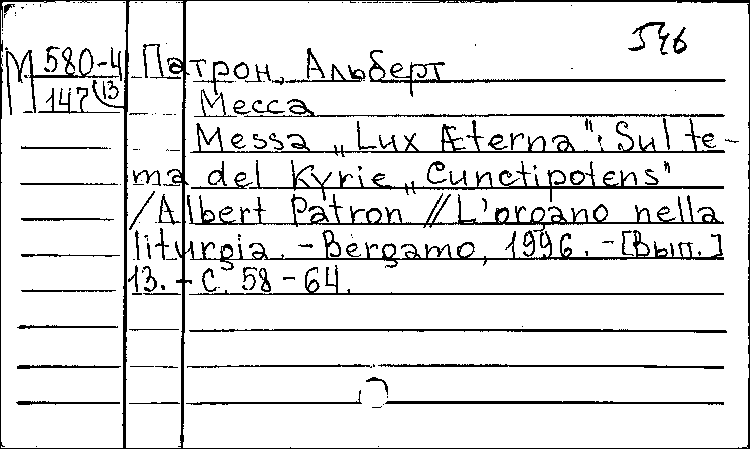 546
М 580-4 Патрон, Альберт
147 (13 Месса
Messa „Lux Æterna": Sul te-
ma del Kyrie „Cunctipotens"
/Albert Patron // L'organo nella
liturgia. - Bergamo, 1996. - [Вып.]
13. - С. 58-64.